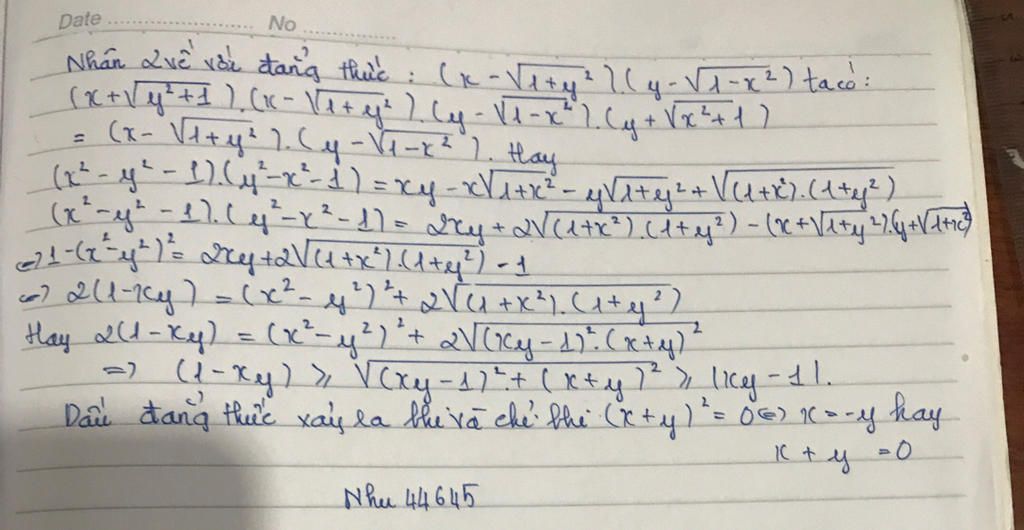 Date .................... No ...............
Nhân 2 vế với đẳng thức : (x - √(1+y²)).(y - √(1-x²)) ta có:
(x+√(y²+1)).(x - √(1+y²)).(y - √(1-x²)).(y + √(x²+1))
= (x - √(1+y²)).(y - √(1-x²)). Hay
(x² - y² - 1).(y² - x² - 1) = xy - x√(1+x²) - y√(1+y²) + √((1+x²).(1+y²))
(x² - y² - 1).(y² - x² - 1) = 2xy + 2√((1+x²).(1+y²)) - (x+√(1+y²)).(y+√(1+x²))
<=> 1-(x²-y²)² = 2xy+2√((1+x²).(1+y²)) - 1
<=> 2(1-xy) = (x²-y²)² + 2√((1+x²).(1+y²))
Hay 2(1-xy) = (x²-y²)² + 2√((xy-1)².(x+y)²)
=> (1-xy) ≥ √((xy-1)²+(x+y)²) ≥ |xy-1|.
Dấu đẳng thức xảy ra khi và chỉ khi (x+y)² = 0 <=> x = -y hay
x + y = 0
Như 44645